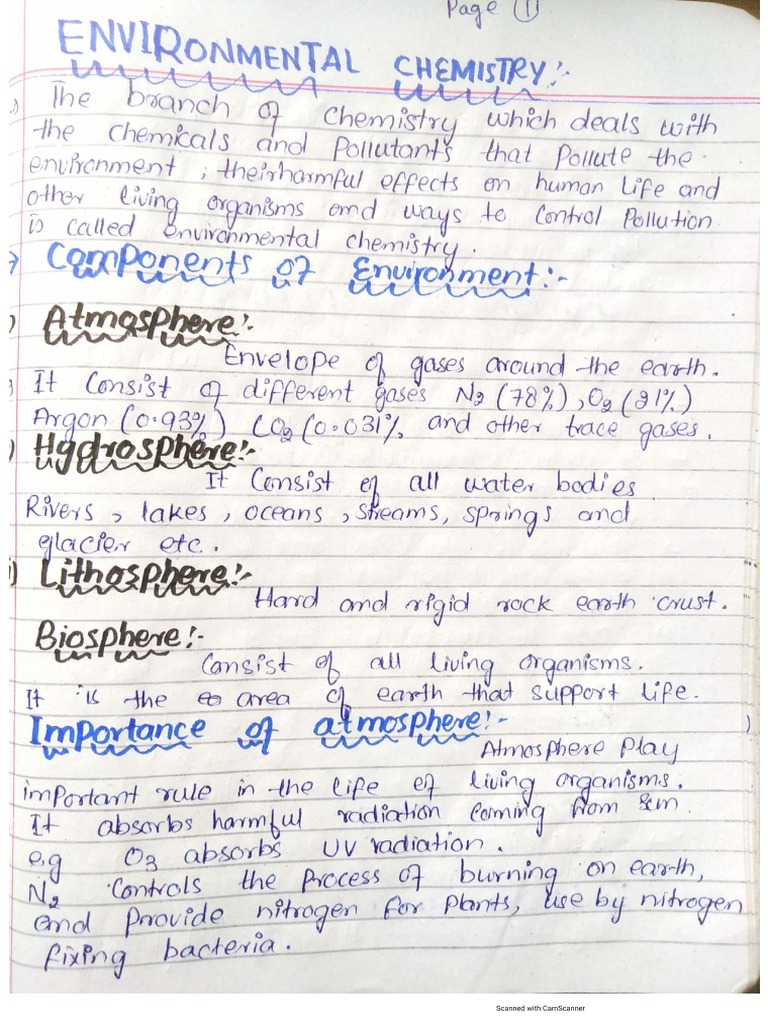 Page 1
ENVIRONMENTAL CHEMISTRY:-
The branch of chemistry which deals with
the chemicals and Pollutants that Pollute the
environment, their harmful effects on human life and
other living organisms and ways to control Pollution
is called environmental chemistry.
Components of Environment:-
Atmosphere:-
Envelope of gases around the earth.
It Consist of different gases N2 (78%), O2 (21%)
Argon (0.93%) CO2 (0.031% and other trace gases.
Hydrosphere:-
It Consist of all water bodies
Rivers, lakes, oceans, streams, springs and
glacier etc.
Lithosphere:-
Hard and rigid rock earth crust.
Biosphere:-
Consist of all living organisms.
It is the area of earth that support life.
Importance of atmosphere:-
Atmosphere Play
important rule in the life of living organisms.
It absorbs harmful radiation coming from sun.
e.g O3 absorbs UV radiation.
N2 Controls the Process of burning on earth,
and Provide nitrogen for Plants, use by nitrogen
fixing bacteria.
Scanned with CamScanner